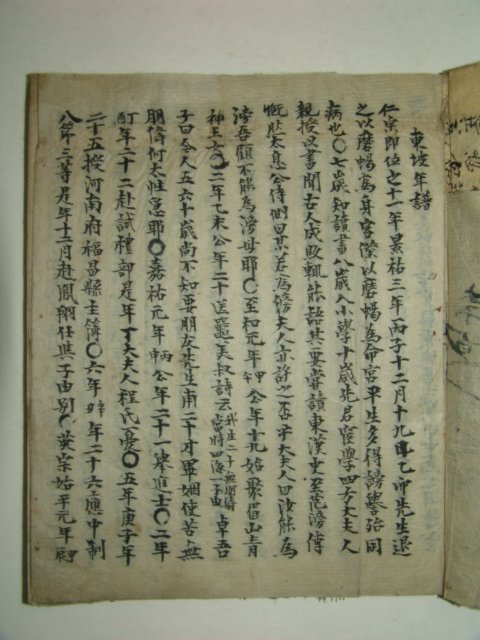 東坡年譜
仁宗即位之十一年景祐三年丙子十二月十九日乙卯先生退
之以磨蝎爲身宮僕以磨蝎爲命宮平生多得謗譽殆同
病也〇七歲知讀書八歲入小學十歲先君宦學四方大夫人
親授以書聞古人成敗輒能語其要嘗讀東漢史至范滂傳
慨然太息公侍側曰某若爲滂夫人亦許之否乎大夫人曰汝能爲
滂吾顧不能爲滂母耶〇至和元年甲午公年十九始聚眉山青
神王女〇二年乙未公年二十送晁美叔詩云我生二十無朋儔當時四海一子由卓吾
子曰今人五六十歲尚不知要朋友先生甫二十才畢姻便苦無
朋儔何太性急耶〇嘉祐元年丙申公年二十一舉進士〇二年
酉年二十二赴試禮部是年丁大夫人程氏憂〇五年庚子年
二十五授河南府福昌縣主簿〇六年辛丑年二十六應中制
八節三等是年十二月赴鳳翔任與子由別〇英宗始平元年